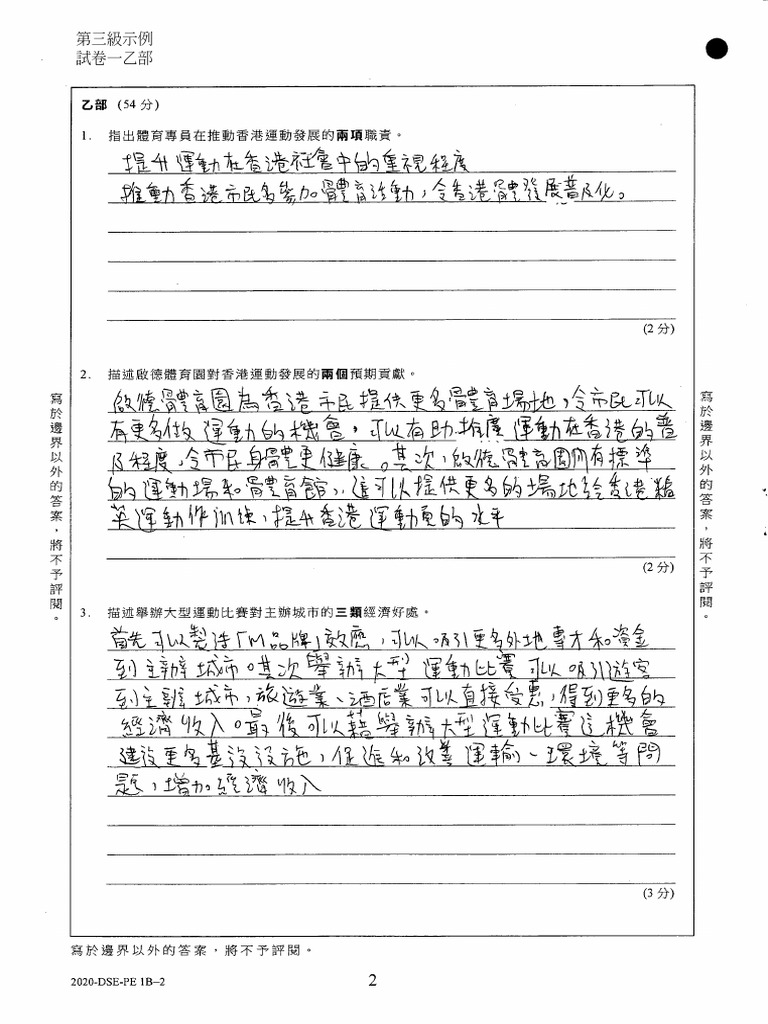 第三級示例
試卷一乙部
乙部 (54 分)
1. 指出體育專員在推動香港運動發展的兩項職責。
提升運動在香港社會中的重視程度
推動香港市民多參加體育活動，令香港體發展普及化。
(2 分)
2. 描述啟德體育園對香港運動發展的兩個預期貢獻。
啟德體育園為香港市民提供更多體育場地，令市民可以
有更多做運動的機會，可以有助推廣運動在香港的普
及程度，令市民身體更健康。其次，啟德體育園所有標準
的運動場和體育館，這可以提供更多的場地給香港精
英運動作訓練，提升香港運動員的水平
(2 分)
3. 描述舉辦大型運動比賽對主辦城市的三類經濟好處。
首先可以製造「M品牌」效應，可以吸引更多外地專才和資金
到主辦城市。其次舉辦大型運動比賽可以吸引遊客
到主辦城市，旅遊業、酒店業可以直接受惠，得到更多的
經濟收入。最後可以藉舉辦大型運動比賽這機會
建設更多基設設施，促進和改善運輸、環境等問
題，增加經濟收入
(3 分)
寫於邊界以外的答案，將不予評閱。
寫於邊界以外的答案，將不予評閱。
寫於邊界以外的答案，將不予評閱。
2020-DSE-PE 1B–2
2